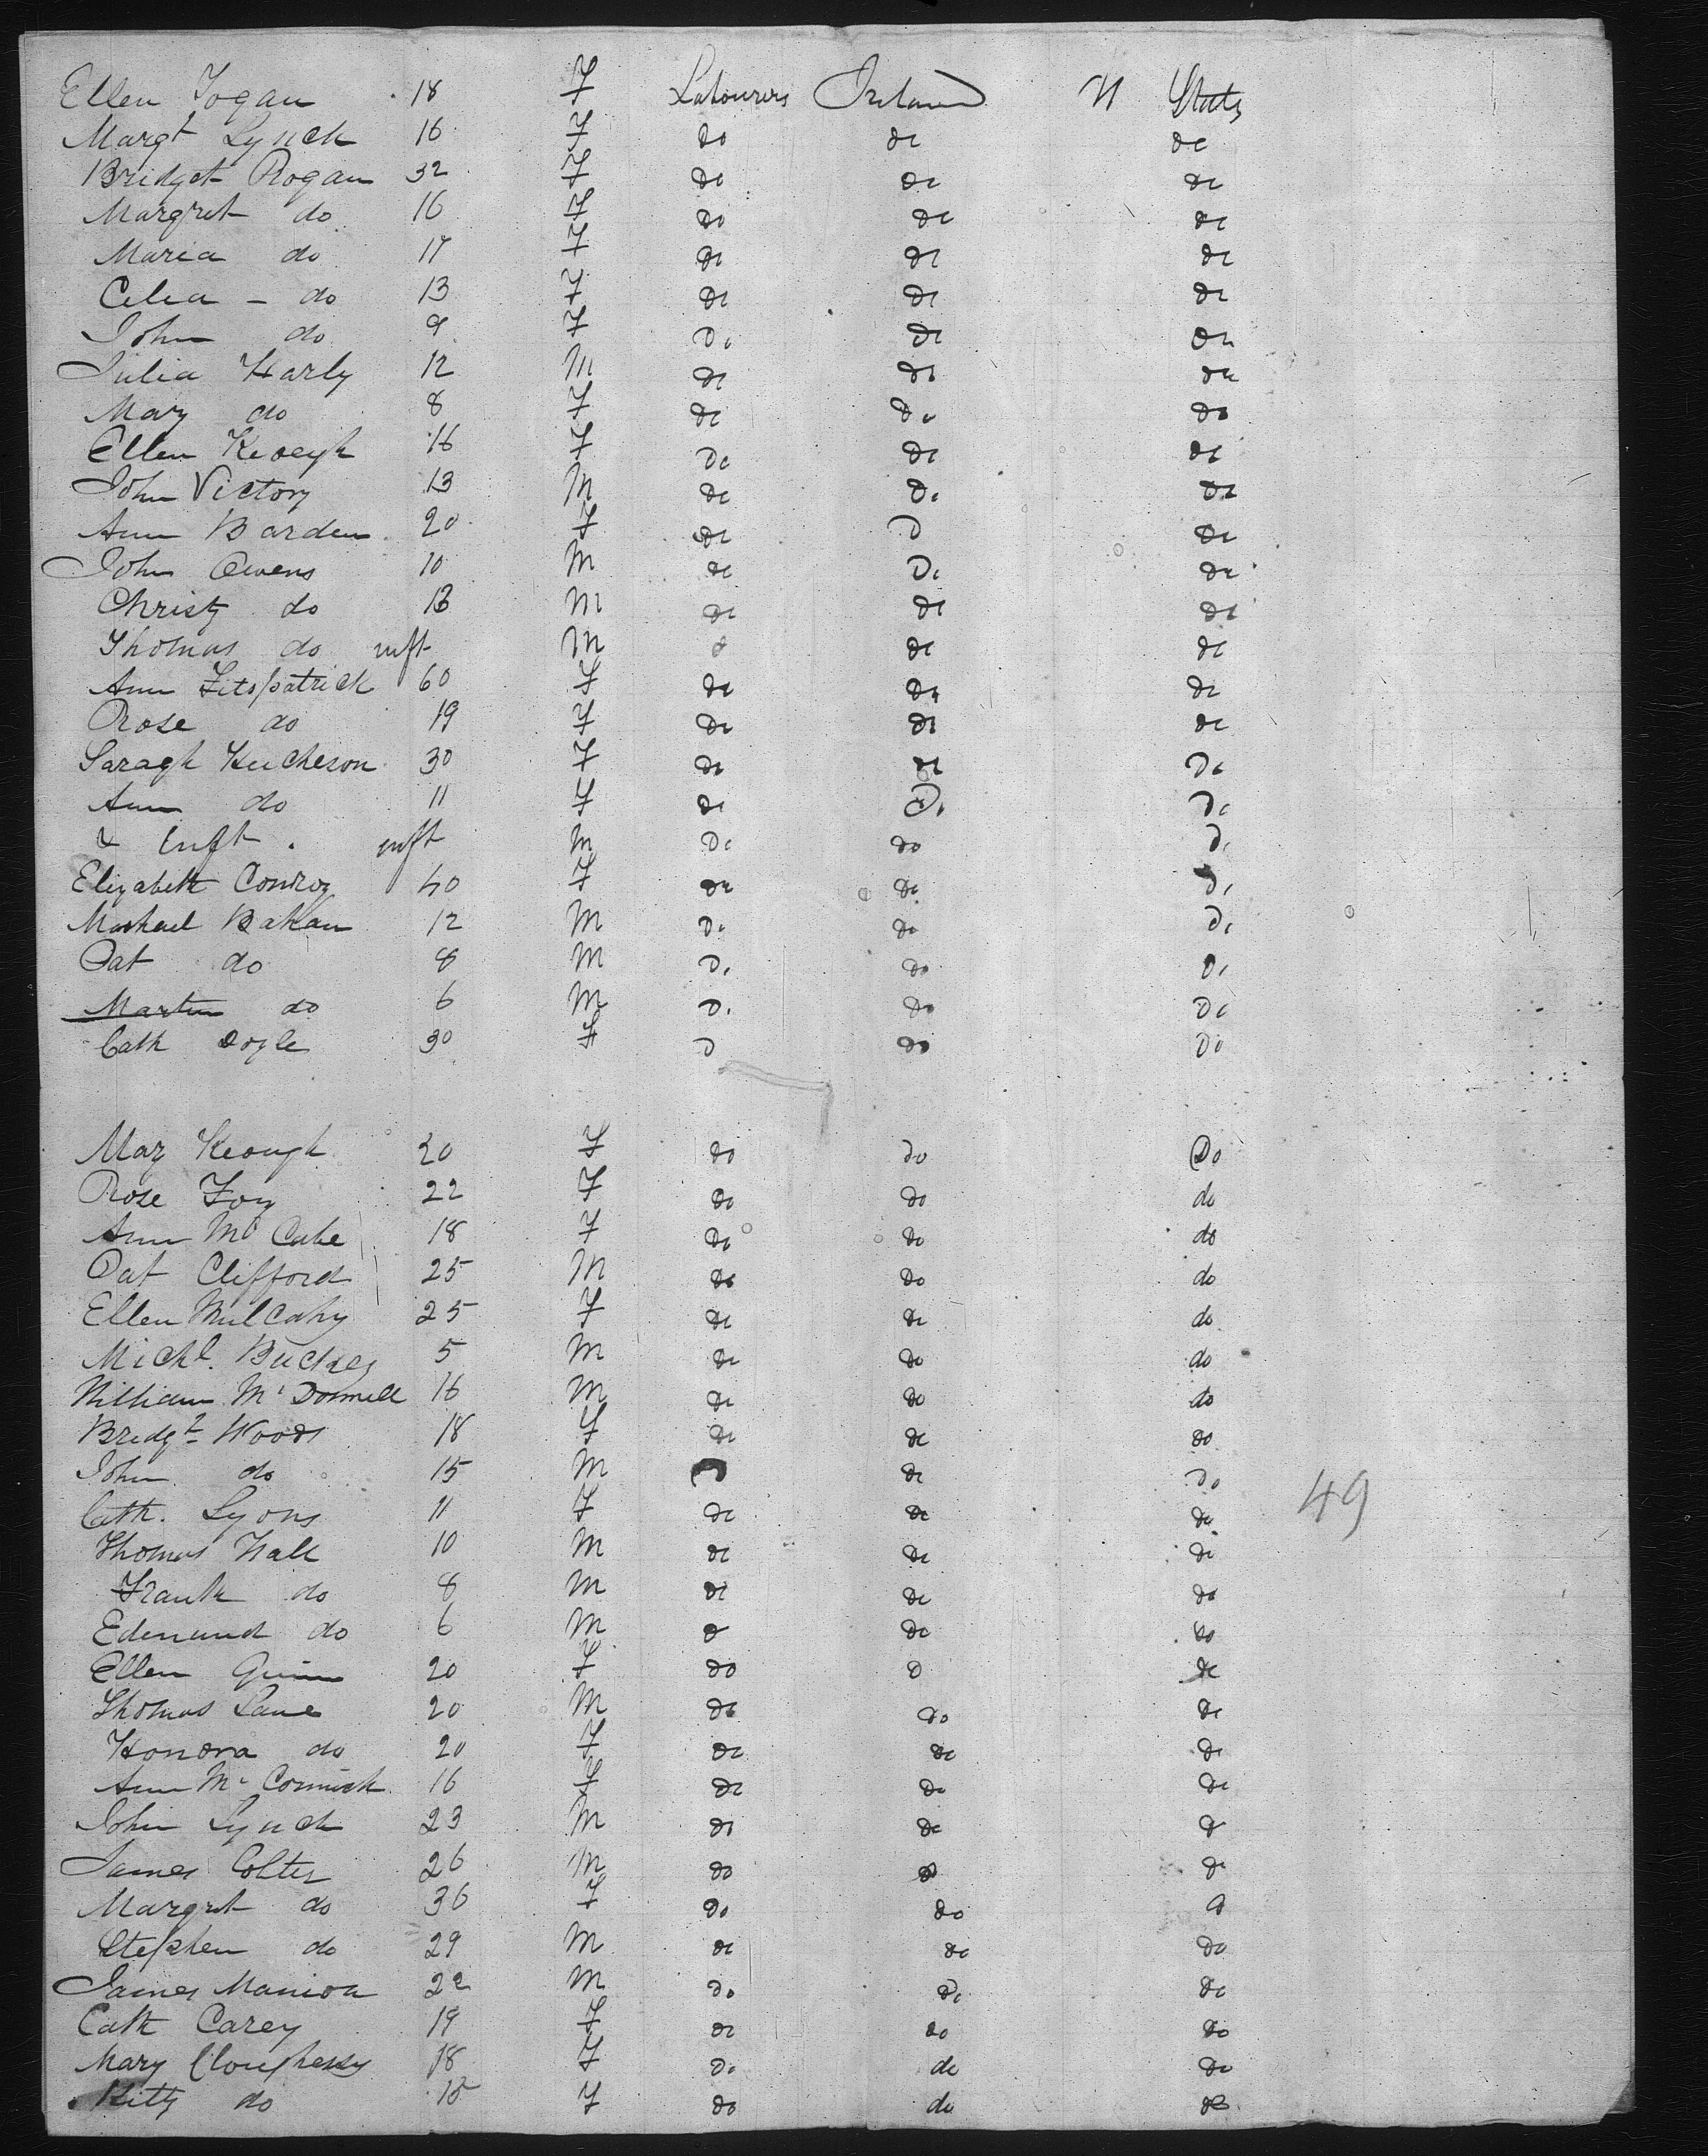 Ellen Fogan 18 F Labourers Ireland U States
Margt Lynch 16 F do do do
Bridget Rogan 32 F do do do
Margret do 16 F do do do
Maria do 17 F do do do
Celia - do 13 F do do do
John do 9 F do do do
Julia Harly 12 M do do do
Mary do 8 F do do do
Ellen Keoegh 16 F do do do
John Victory 13 M do do do
Ann Barden 20 F do do do
John Owens 10 M do do do
Christy do 13 M do do do
Thomas do inft M do do do
Ann Fitspatrick 60 F do do do
Rose do 19 F do do do
Saragh Hucheson 30 F do do do
Ann do 11 F do do do
& Inft. inft M do do do
Elizabeth Conroy 40 F do do do
Mashael Bakan 12 M do do do
Pat do 8 M do do do
Martin do 6 M do do do
Cath Doyle 30 F do do do
May Keough 20 F do do Do
Rose Foy 22 F do do do
Ann Mc Cabe 18 F do do do
Pat Clifford 25 M do do do
Ellen Mulcahy 25 F do do do
Michl. Buckley 5 M do do do
William Mc Donnell 16 M do do do
Bridgt Woods 18 F do do do
John do 15 M do do do
49
Cath. Lyons 11 F do do do
Thomas Hall 10 M do do do
Frank do 8 M do do do
Edmund do 6 M do do do
Ellen Quinn 20 F do do do
Thomas Lane 20 M do do do
Honora do 20 F do do do
Ann Mc Cormick 16 F do do do
John Lynch 23 M do do do
James Colter 26 M do do do
Margret do 36 F do do do
Stephen do 29 M do do do
James Manion 22 M do do do
Cath Carey 19 F do do do
Mary Cloughessy 18 F do do do
Kitty do 15 F do do do